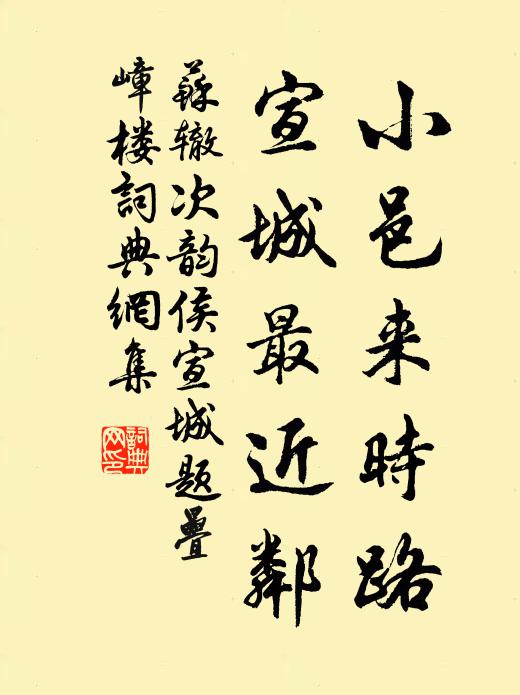 小邑来時路
宣城最近鄰
蘇辙次韵侯宣城题疊
嶂楼詞典網集
詞典网印